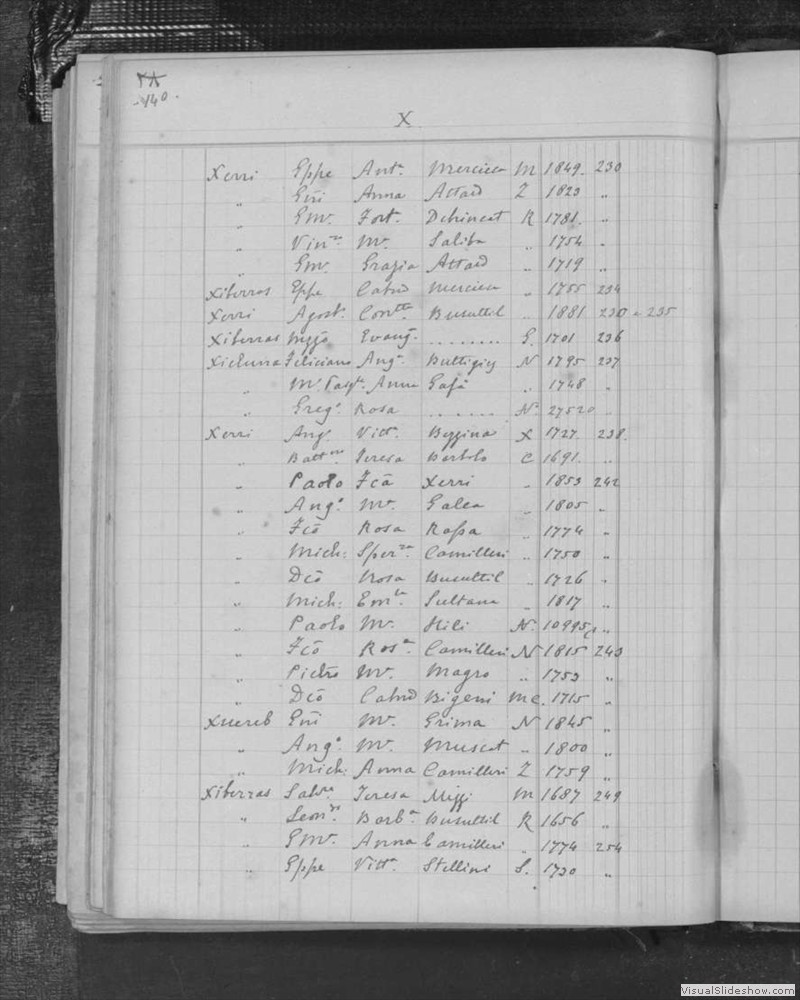 140.
X
Xerri Eppe Ant. Mercieca M 1849. 230
„ Eñi Anna Attard Z 1823 „
„ Gmr. Fort. Debrincat R 1781. „
„ Vin.ze Mr. Saliba „ 1754 „
„ Gmr. Grazia Attard „ 1719 „
Xiberras Eppe Catrd Mercieca „ 1755 234
Xerri Agost. Con.tta Busuttil „ 1881 230 e 235
Xiberras Evang. ......... G. 1701 236
Xicluna Feliciano Ang.a Buttigieg N 1795 237
„ Anna Gafà „ 1748 „
„ Greg.o Rosa ....... N. 2752 „
Xerri Ang. Vitt. X 1727. 238.
„ Batt. Teresa Bartolo C 1691. „
„ Paolo Fcã Xerri „ 1853 242
„ Ang.o Mr. Galea „ 1805 „
„ Fcõ Rosa „ 1774 „
„ Mich: Sper.za Camilleri „ 1750 „
„ Dcõ Rosa Busuttil „ 1726 „
„ Mich: Sultana „ 1817 „
„ Paolo Mr. Hili N. „
„ Fcõ Ros.a Camilleri N 1815 243
„ Pietro Mr. Magro „ 1753 „
„ Dcõ Catrd Bigeni Mc. 1715 „
Xuereb Eñi Mr. Grima N 1845 „
„ Ang.o Mr. Muscat „ 1800 „
„ Mich: Anna Camilleri Z 1759 „
Xiberras Salv.re Teresa Mizzi M 1687 249
„ Leon.do Barb.a Busuttil R 1656 „
„ Gmr. Anna Camilleri „ 1774 254
„ Eppe Vitt.a Stellini S. 1730 „
VisualSlideshow.com